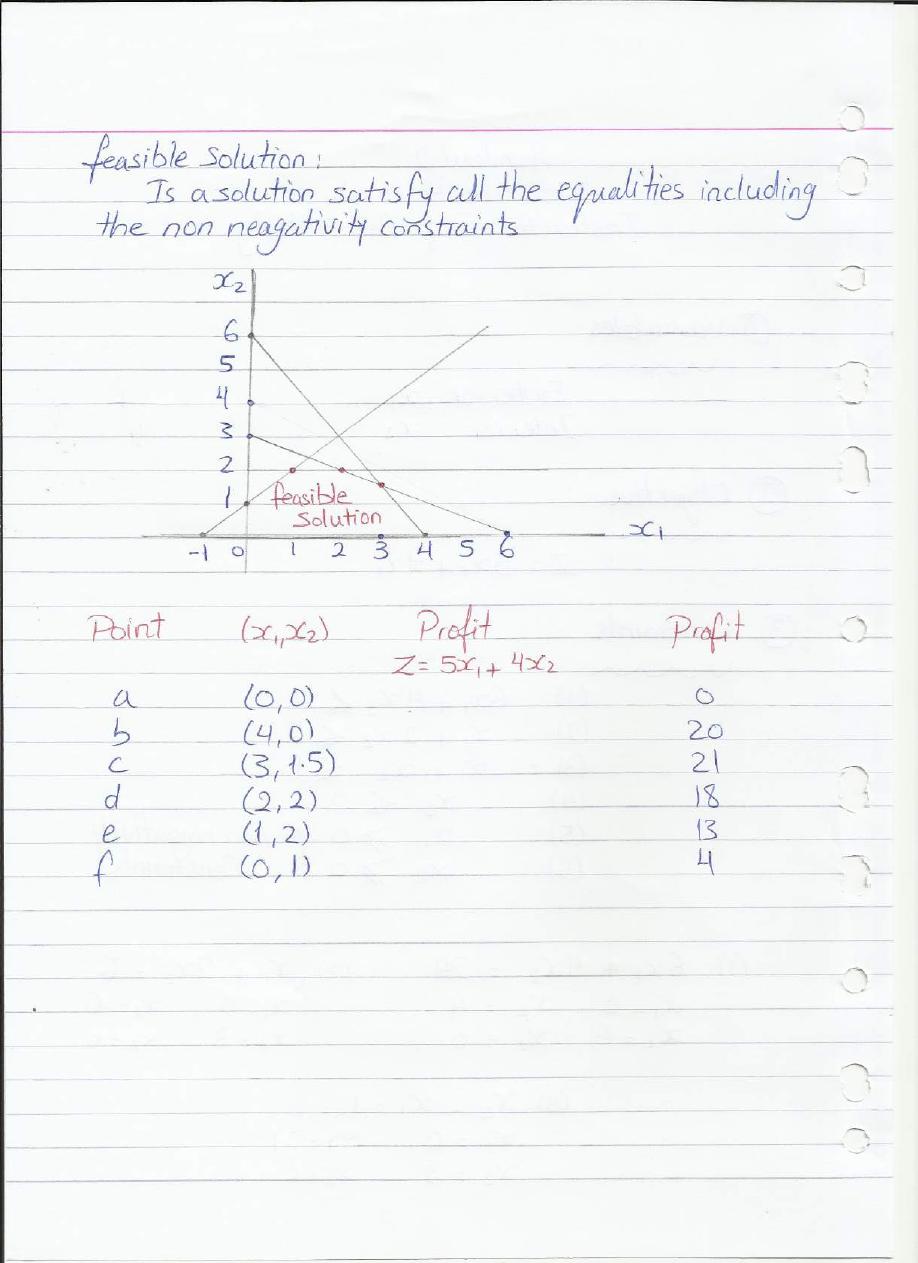 feasible Solution:
Is a solution satisfy all the equalities including
the non neagativity constraints
x2
6
5
4
3
2
1
feasible
solution
-1 0 1 2 3 4 5 6
x1
Point (x1,x2) Profit Profit
Z = 5x1 + 4x2
a (0,0) 0
b (4,0) 20
c (3,1.5) 21
d (2,2) 18
e (1,2) 13
f (0,1) 4